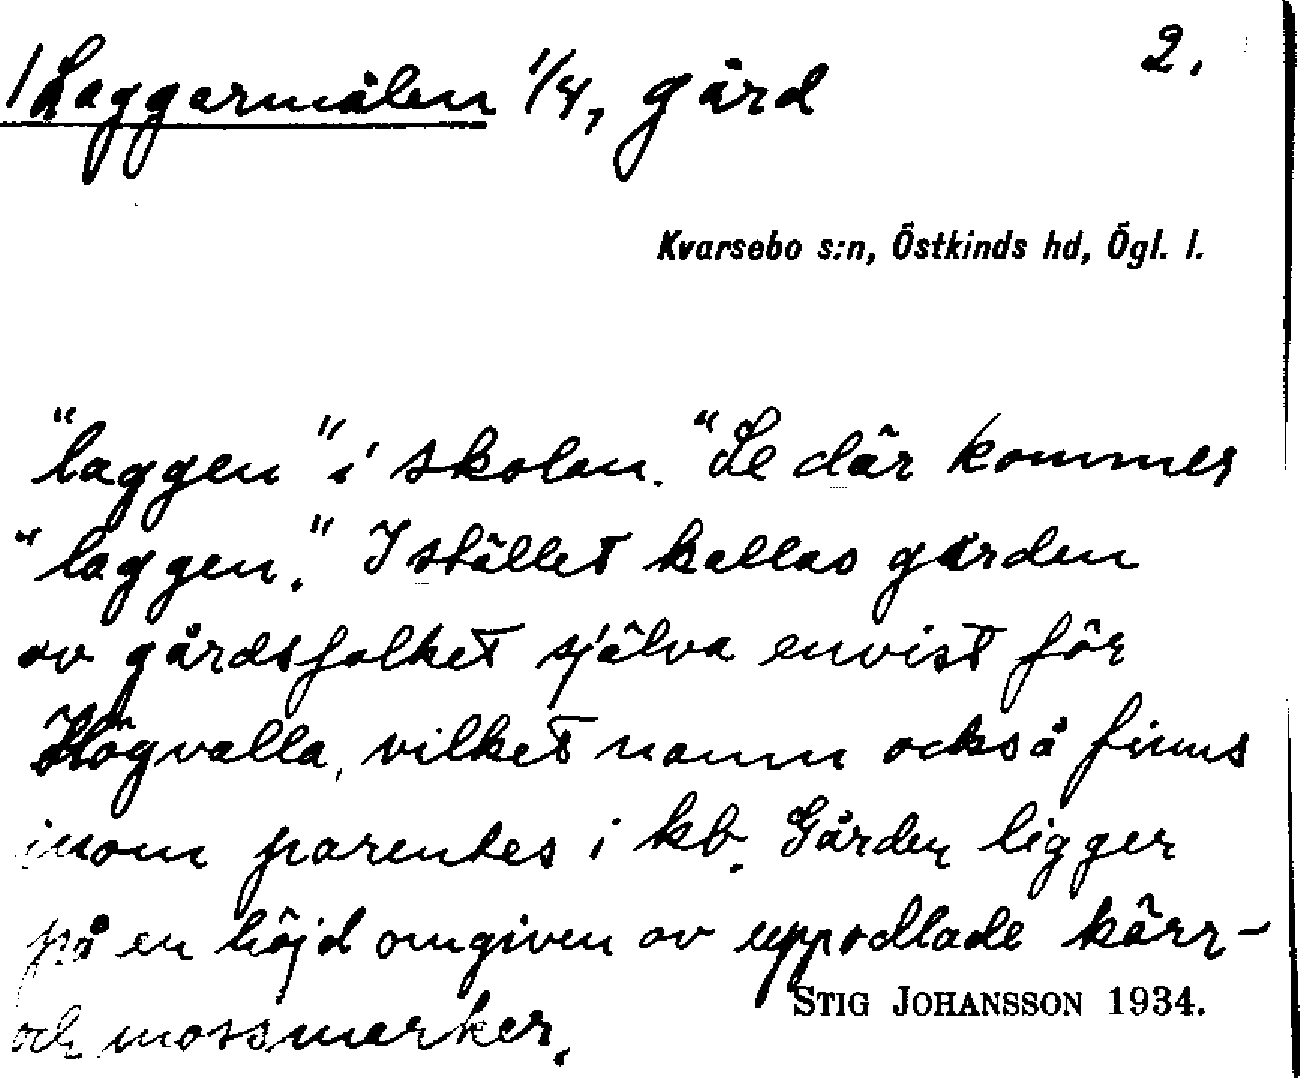 2.
/ Laggarmålen 1/4, gård
Kvarsebo s:n, Östkinds hd, Ögl. l.
"laggen" i skolan. "Se där kommer
"laggen." I stället kallas gården
av gårdsfolket själva envist för
Högvalla, vilket namn också finns
inom parentes i kb. Gården ligger
på en höjd omgiven av uppodlade kärr-
och mossmarker.
STIG JOHANSSON 1934.